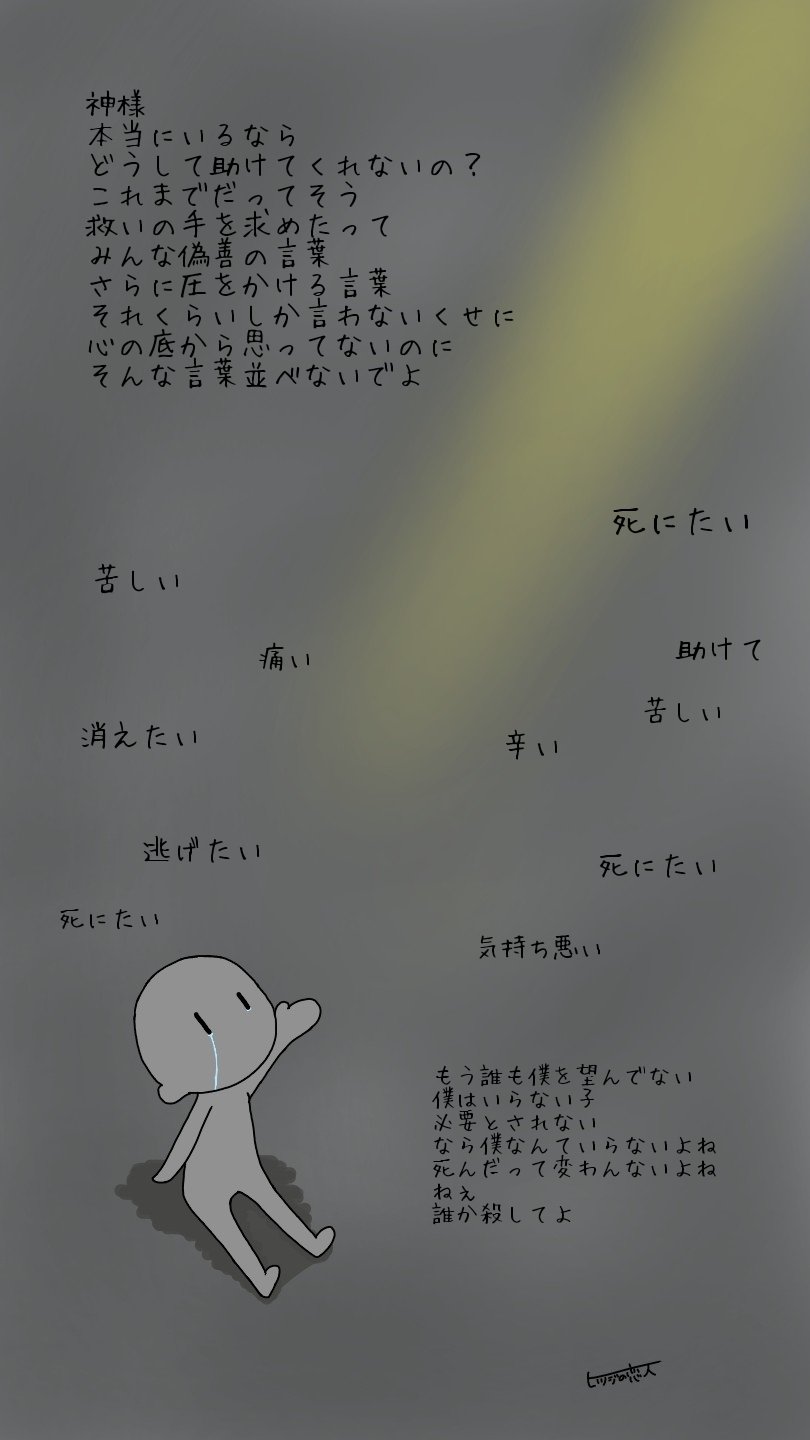 神様
本当にいるなら
どうして助けてくれないの？
これまでだってそう
救いの手を求めたって
みんな偽善の言葉
さらに圧をかける言葉
それくらいしか言わないくせに
心の底から思ってないのに
そんな言葉並べないでよ
死にたい
苦しい
痛い
助けて
苦しい
消えたい
辛い
逃げたい
死にたい
死にたい
気持ち悪い
もう誰も僕を望んでない
僕はいらない子
必要とされない
なら僕なんていらないよね
死んだって変わんないよね
ねぇ
誰か殺してよ